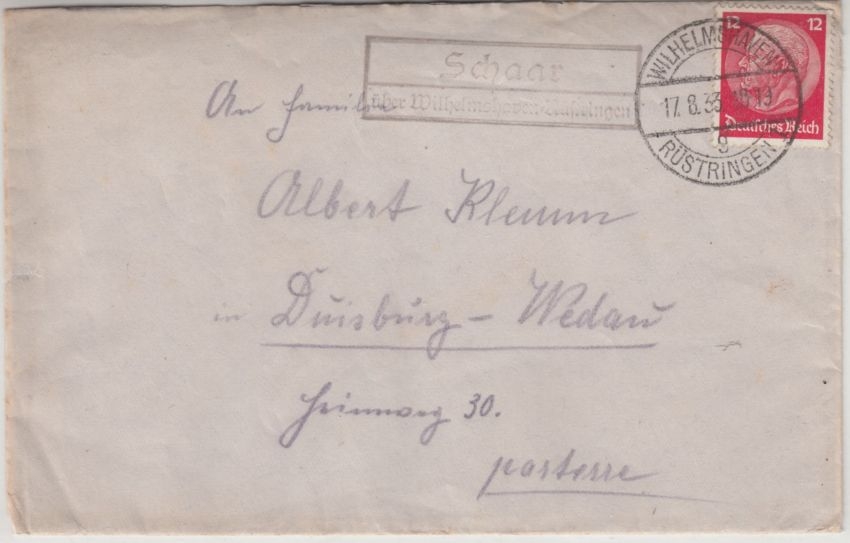 Schaar
über Wilhelmshaven-Rüstringen
12 12
Deutsches Reich
WILHELMSHAVEN
17.8.33. 18-19
g
RÜSTRINGEN
An Familie
Albert Klemm
in Duisburg - Wedau
Heimweg 30.
parterre